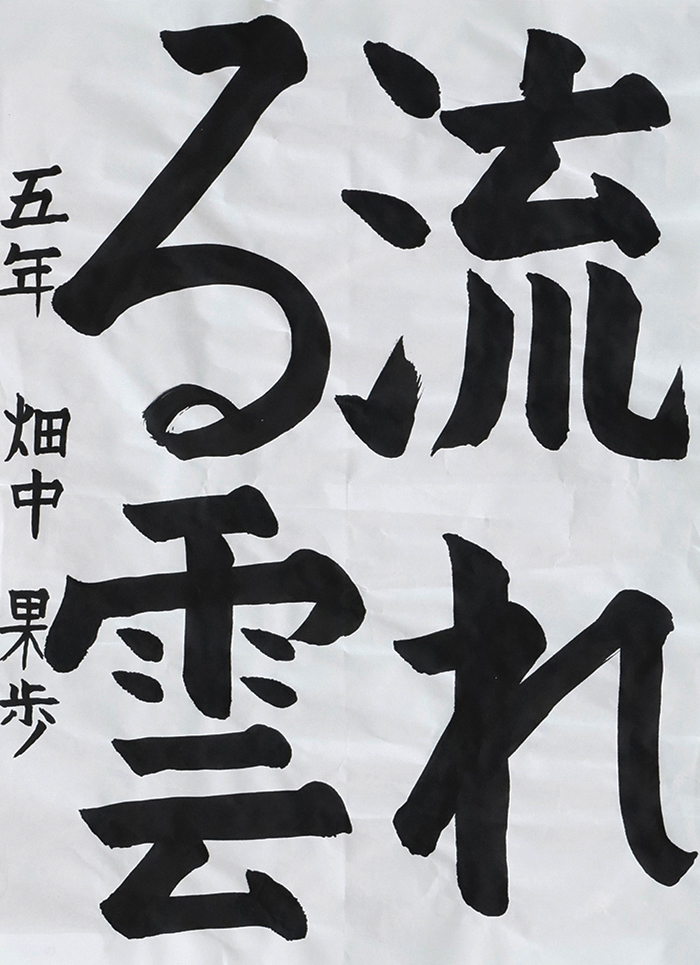 流れ
る雲
五年 畑中 果歩